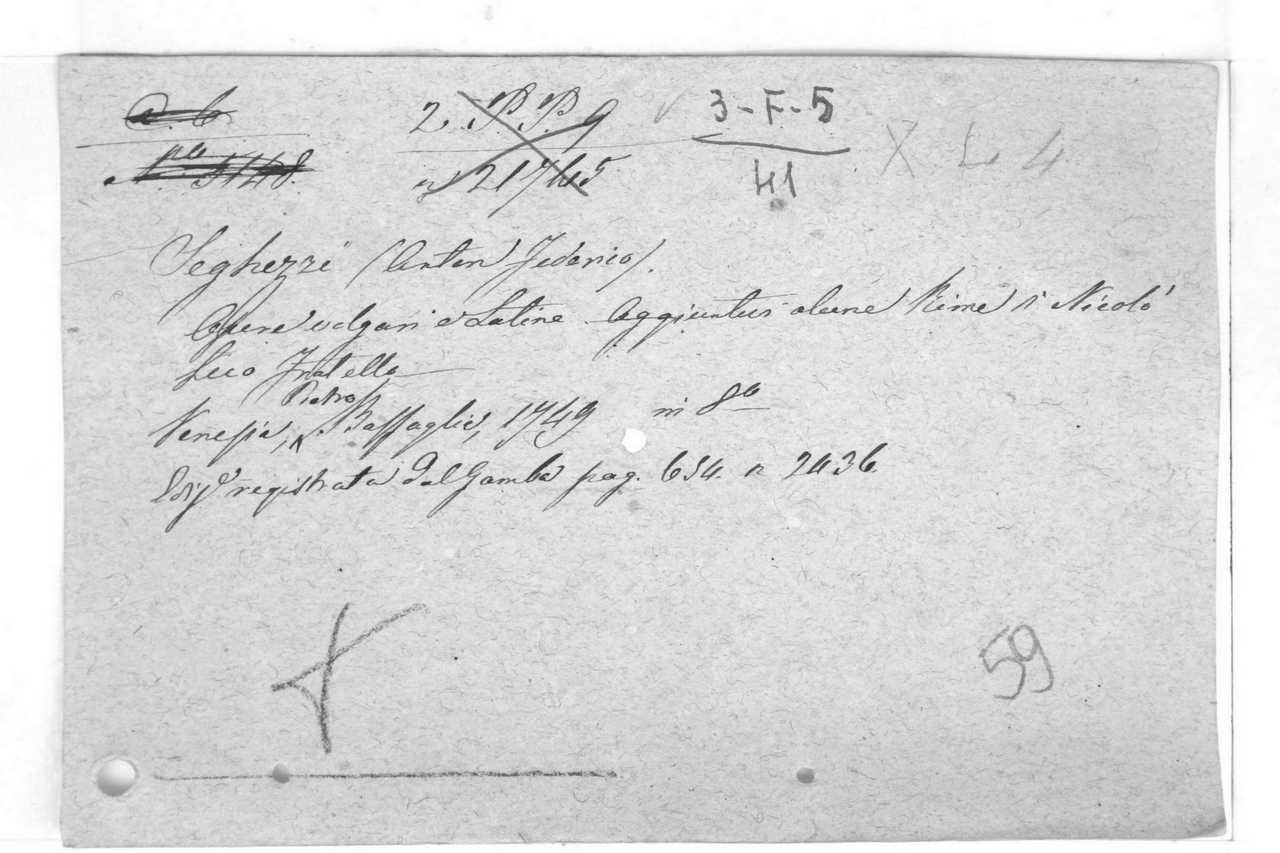 2. P. P. 9 3-F-5 X L 4
n° 21745 41
Seghezzi (Anton Federico).
Opere volgari e Latine Aggiuntevi alcune Rime di Nicolò
Suo Fratello
Venezia, Pietro Bassaglia, 1749 in 8°
Ediz.e registrata dal Gamba pag. 654. n 2436
59